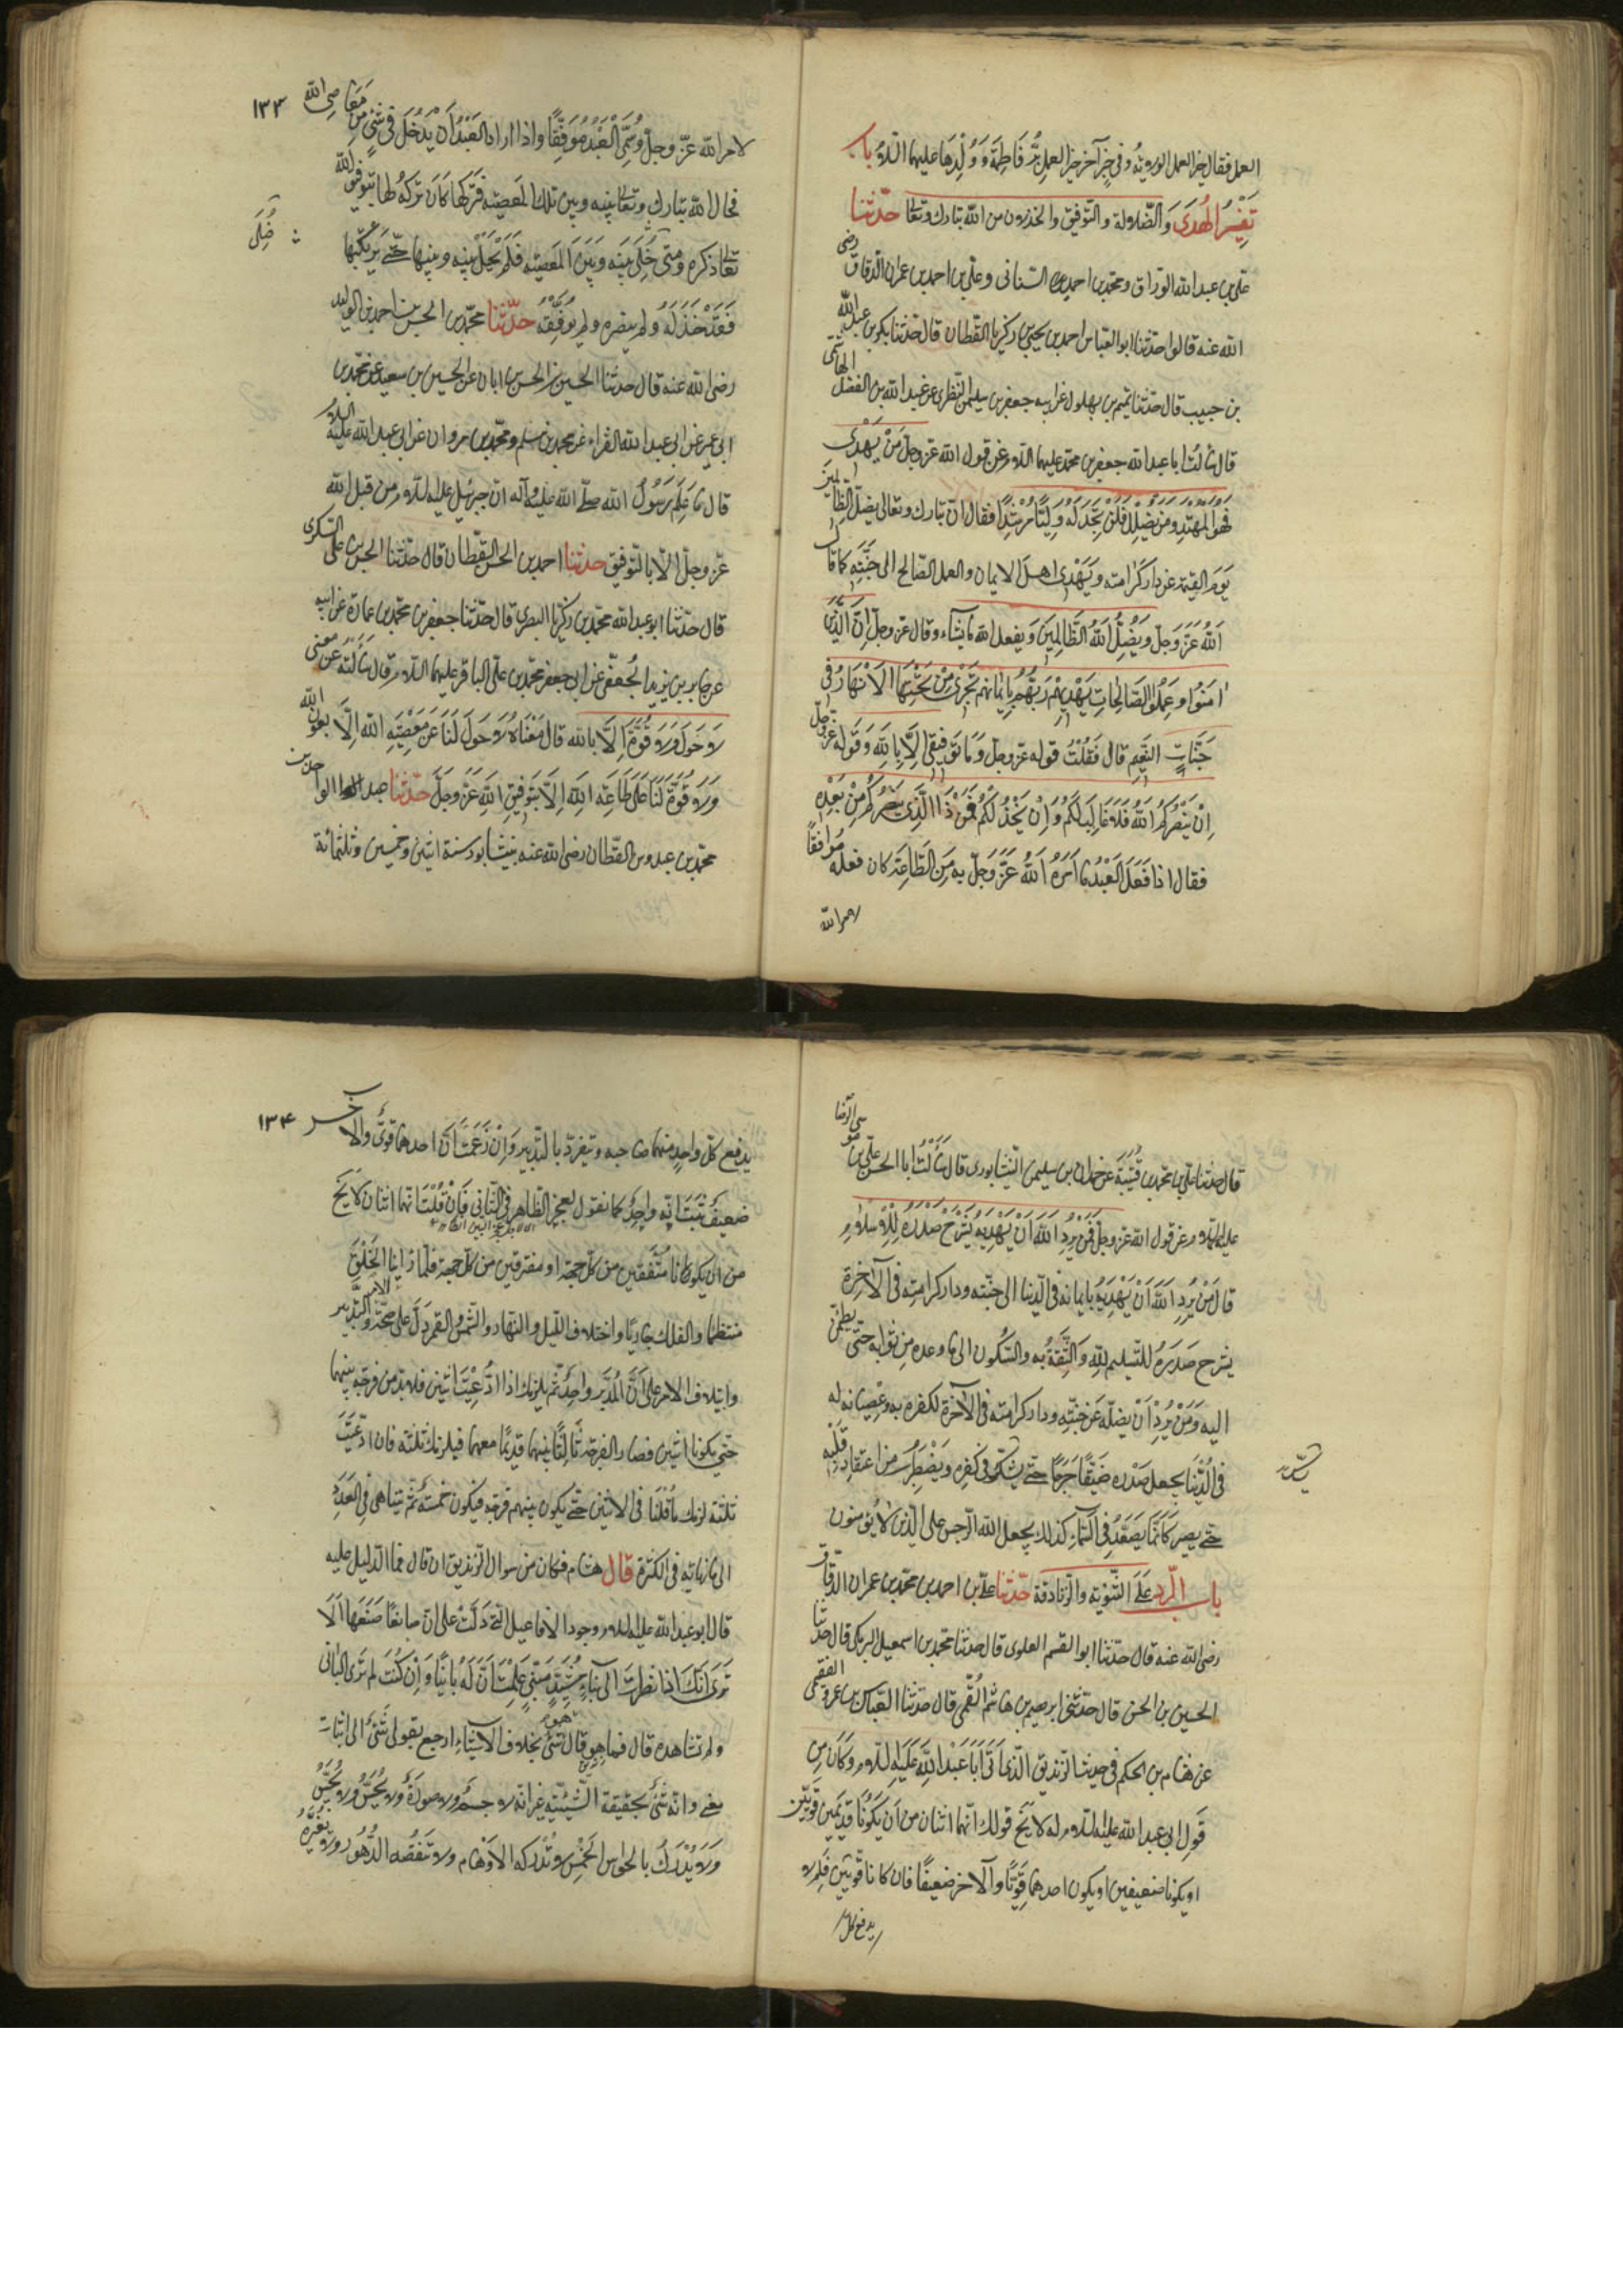 العمل فقال خير العمل الولاية وفى خبر آخر خير العمل بر فاطمة وولدها عليها السلام باب
تفسير الهدى والضلالة والتوفيق والخذلان من الله تبارك وتعالى حدثنا
على بن عبد الله الوراق ومحمد بن احمد السنانى وعلى بن احمد بن عمران الدقاق رضى
الله عنه قالوا حدثنا ابو العباس احمد بن يحيى بن زكريا القطان قال حدثنا بكر بن عبد الله
بن حبيب قال حدثنا تميم بن بهلول عن ابيه جعفر بن سليمن النظرى عن عبد الله بن الفضل الهاشمى
قال سألت ابا عبد الله جعفر بن محمد عليهما السلام عن قول الله عز وجل مَنْ يَهْدِى
فهو المهتد ومن يضلل فلن تجد له وليا مرشدا فقال ان تبارك وتعالى يضل الظالمين
يوم القيمة عن دار كرامته ويهدى اهل الايمان والعمل الصالح الى جنته كما قال
الله عز وجل ويضل الله الظالمين ويفعل الله ما يشاء وقال عز وجل ان الذين
امنوا وعملوا الصالحات يهديهم ربهم بايمانهم تجرى من تحتها الانهار فى
جنات النعيم قال فقلت قوله عز وجل وما توفيقى الا بالله وقوله عز وجل
ان ينصركم الله فلا غالب لكم وان يخذلكم فمن ذا الذى ينصركم من بعده
فقال اذا فعل العبد ما امره الله عز وجل به من الطاعة كان فعله موافقا
لامر الله
١٣٣
لامر الله عز وجل وسمى العبد موفقا واذا اراد العبد ان يدخل فى شئ من معاصى الله
فحال الله تبارك وتعالى بينه وبين تلك المعصية فتركها كان تركه لها بتوفيق الله
تعالى ذكره ومتى خلى بينه وبين المعصية فلم يحل بينه وبينها حتى يرتكبها
فقد خذله ولم ينصره ولم يوفقه حدثنا محمد بن الحسن بن احمد بن الوليد
رضى الله عنه قال حدثنا الحسين بن الحسن بن ابان عن الحسين بن سعيد عن محمد بن
ابى عمير عن ابى عبد الله الفراء عن محمد بن مسلم ومحمد بن مروان عن ابى عبد الله عليه السلام
قال ما علم رسول الله صلى الله عليه وآله ان جبرئيل عليه السلام من قبل الله
عز وجل الا بالتوفيق حدثنا احمد بن الحسن القطان قال حدثنا الحسن بن على السكرى
قال حدثنا ابو عبد الله محمد بن زكريا البصرى قال حدثنا جعفر بن محمد بن عمارة عن ابيه
عن جابر بن يزيد الجعفى عن ابى جعفر محمد بن على الباقر عليهما السلام قال سألته عن معنى
لا حول ولا قوة الا بالله قال معناه لا حول لنا عن معصية الله الا بعون الله
ولا قوة لنا على طاعة الله الا بتوفيق الله عز وجل حدثنا عبد الواحد بن
محمد بن عبدوس القطان رضى الله عنه بنيشابور سنة اثنين وخمسين وثلثمائة
قال حدثنا على بن محمد بن قتيبة عن حمدان بن سليمن النيشابورى قال سألت ابا الحسن على بن موسى الرضا
عليه السلام عن قول الله عز وجل فمن يرد الله ان يهديه يشرح صدره للاسلام
قال من يرد الله ان يهديه بايمانه فى الدنيا الى جنته ودار كرامته فى الآخرة
يشرح صدره للتسليم لله والثقة به والسكون الى ما وعده من ثوابه حتى يطمئن
اليه ومن يرد ان يضله عن جنته ودار كرامته فى الآخرة لكفره به وعصيانه له
فى الدنيا يجعل صدره ضيقا حرجا حتى يشك فى كفره ويضطرب من اعتقاد قلبه
حتى يصير كانما يصعد فى السماء كذلك يجعل الله الرجس على الذين لا يؤمنون
باب الرد على الثنوية والزنادقة حدثنا على بن احمد بن محمد بن عمران الدقاق
رضى الله عنه قال حدثنا ابو القسم العلوى قال حدثنا محمد بن اسمعيل البرمكى قال حدثنا
الحسين بن الحسن قال حدثنى ابرهيم بن هاشم القمى قال حدثنا العباس بن عمرو الفقيمى
عن هشام بن الحكم فى حديث الزنديق الذى اتى ابا عبد الله عليه السلام وكان من
قول ابى عبد الله عليه السلام له لا يخ قولك انهما اثنان من ان يكونا قديمين قويين
او يكونا ضعيفين او يكون احدهما قويا والآخر ضعيفا فان كانا قويين فلم لا
يدفع كل
١٣٤
يدفع كل واحد منهما صاحبه ويتفرد بالتدبير وان زعمت ان احدهما قوى والآخر
ضعيف ثبت انه واحد كما نقول لعجز الظاهر فى الثانى فان قلت انهما اثنان لا يخ
من ان يكونا متفقين من كل جهة او مفترقين من كل جهة فلما راينا الخلق
منتظما والفلك جاريا واختلاف الليل والنهار والشمس والقمر دل على صحة الامر والتدبير
وايتلاف الامر على ان المدبر واحد ثم يلزمك اذا ادعيت اثنين فلا بد من فرجة بينهما
حتى يكونا اثنين فصار الفرجة ثالثا بينهما قديما معهما فيلزمك ثلثة فان ادعيت
ثلثة لزمك ما قلنا فى الاثنين حتى يكون بينهم فرجة فيكون خمسة ثم يتناهى فى العدد
الى ما لا نهاية فى الكثرة قال هشام فكان من سوال الزنديق ان قال فما الدليل عليه
قال ابو عبد الله عليه السلام وجود الافاعيل التى دلت على ان صانعا صنعها الا
ترى انك اذا نظرت الى بناء مشيد مبنى علمت ان له بانيا وان كنت لم ترى البانى
ولم تشاهده قال فما هو قال هو شئ بخلاف الاشياء ارجع بقولى شئ الى اثبات
معنى وانه شئ بحقيقة الشيئية غير انه لا جسم ولا صورة ولا يحس ولا يجس
ولا يدرك بالحواس الخمس لا تدركه الاوهام ولا تنقصه الدهور ولا يغيره